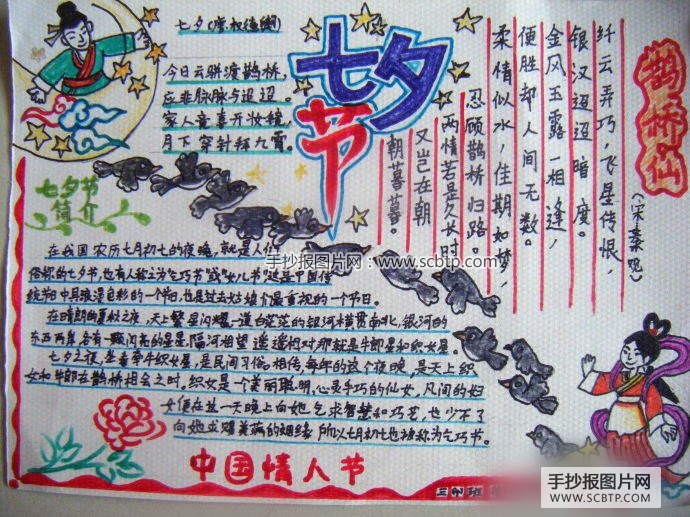 七夕(唐权德舆)
今日云骈渡鹊桥,
应非脉脉与迢迢。
家人竞喜开妆镜,
月下穿针拜九霄。
七夕
节
鹊桥仙
(宋秦观)
纤云弄巧,飞星传恨,
银汉迢迢暗度。
金风玉露一相逢,
便胜却人间无数。
柔情似水,佳期如梦,
忍顾鹊桥归路。
两情若是久长时,
又岂在朝
朝暮暮。
七夕节
简介
在我国农历七月初七的夜晚,就是人们
俗称的七夕节,也有人称之为乞巧节或女儿节。这是中国传
统节日中具浪漫色彩的一个节日,也是过去姑娘们最重视的一个节日。
在晴朗的夏秋之夜,天上繁星闪耀一道白茫茫的银河横贯南北,银河的
东西两岸,各有一颗闪亮的星星,隔河相望,遥遥相对那就是牛郎星和织女星。
七夕之夜,坐看牵牛织女星,是民间习俗,相传,每年的这个夜晚,是天上织
女和牛郎在鹊桥相会之时,织女是一个美丽聪明,心灵手巧的仙女,凡间的妇
女便在这一天晚上向她乞求智慧和巧艺,也少不了
向她求赐美满的姻缘,所以七月初七也被称为乞巧节。
中国情人节
手抄报图片网:www.scbtp.com
手抄报图片网
WWW.SCBTP.COM